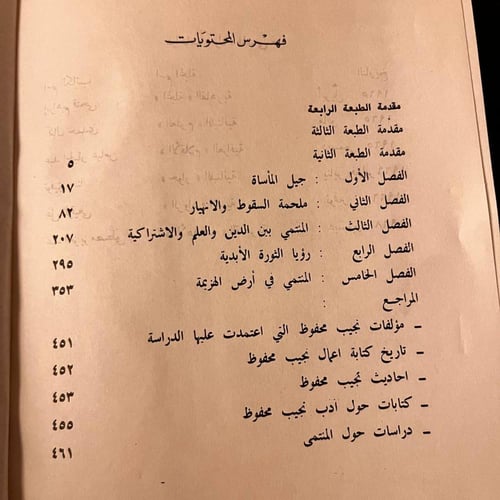 فهرس المحتويات
مقدمة الطبعة الرابعة
مقدمة الطبعة الثالثة
مقدمة الطبعة الثانية ٥
الفصل الأول : جيل المأساة ١٧
الفصل الثاني : ملحمة السقوط والانهيار ٨٢
الفصل الثالث : المنتمي بين الدين والعلم والاشتراكية ٢٠٧
الفصل الرابع : رؤيا الثورة الأبدية ٢٩٥
الفصل الخامس : المنتمي في أرض الهزيمة ٣٥٣
المراجع :
– مؤلفات نجيب محفوظ التي اعتمدت عليها الدراسة ٤٥١
– تاريخ كتابة اعمال نجيب محفوظ ٤٥٢
– احاديث نجيب محفوظ ٤٥٣
– كتابات حول أدب نجيب محفوظ ٤٥٥
– دراسات حول المنتمى ٤٦١